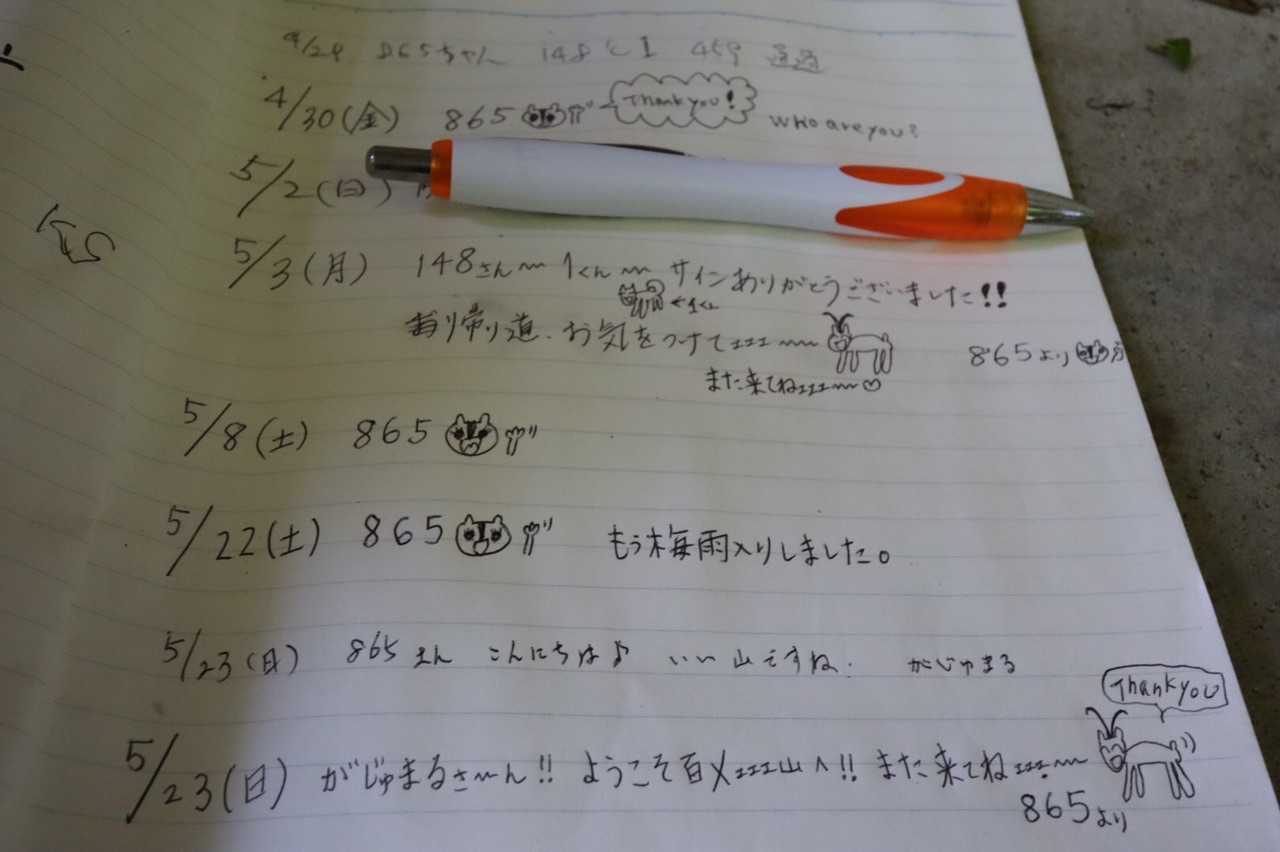 4/29 865ちゃん 148と1 459 通過
4/30(金) 865 Thank you! who are you?
5/2(日)
5/3(月) 148さん〜 1くん〜 サインありがとうございました!!
←1くん
帰り道、お気をつけてェェェ〜 865より
また来てねェェェ〜♡
5/8(土) 865
5/22(土) 865 もう梅雨入りしました。
5/23(日) 865さん こんにちは♪ いい山ですね. がじゅまる
Thank you
5/23(日) がじゅまるさ〜ん!! ようこそ百メェェェ山へ!! また来てねェェェ〜
865より